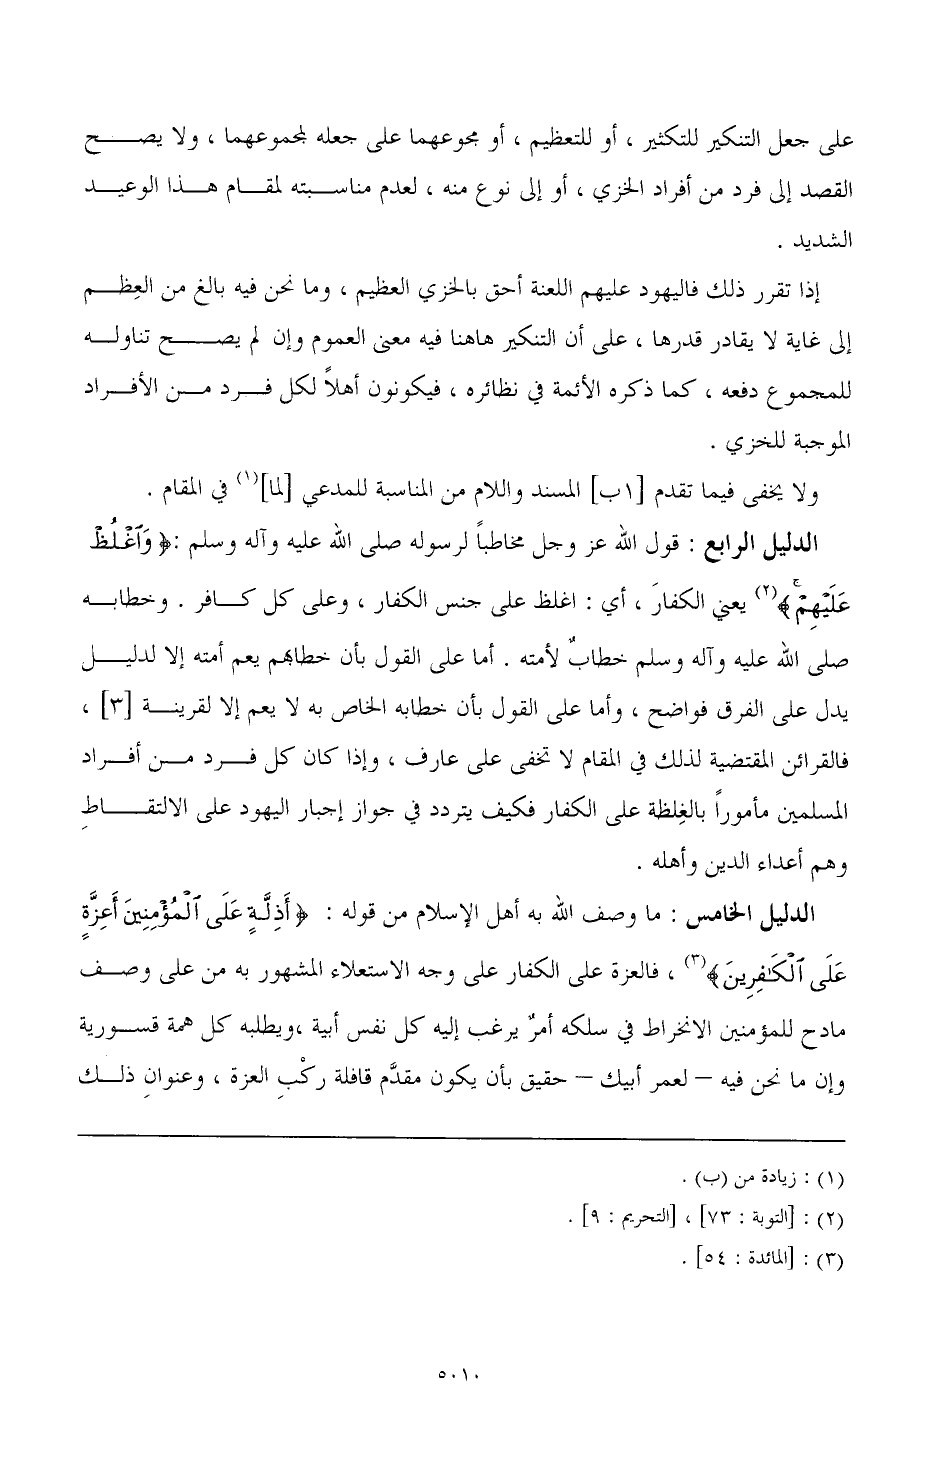 على جعل التنكير للتكثير ، أو للتعظيم ، أو مجموعهما على جعله لمجموعهما ، ولا يصـــح
القصد إلى فرد من أفراد الخزي ، أو إلى نوع منه ، لعدم مناســبته لمقــام هــذا الوعيــد
الشديد .
إذا تقرر ذلك فاليهود عليهم اللعنة أحق بالخزي العظيم ، وما نحن فيه بالغ من العِظــم
إلى غاية لا يقادر قدرها ، على أن التنكير هاهنا فيه معنى العموم وإن لم يصـــح تناولــه
للمجموع دفعه ، كما ذكره الأئمة في نظائره ، فيكونون أهلاً لكل فــرد مــن الأفــراد
الموجبة للخزي .
ولا يخفى فيما تقدم [١ب] المسند واللام من المناسبة للمدعي [لما](١) في المقام .
الدليل الرابع : قول الله عز وجل مخاطباً لرسوله صلى الله عليه وآله وسلم :﴿ وَٱغْلُظْ
عَلَيْهِمْۚ ﴾(٢) يعني الكفارَ ، أي : اغلظ على جنس الكفار ، وعلى كل كــافر . وخطابــه
صلى الله عليه وآله وسلم خطابٌ لأمته . أما على القول بأن خطابهم يعم أمته إلا لدليــل
يدل على الفرق فواضح ، وأما على القول بأن خطابه الخاص به لا يعم إلا لقرينــة [٣] ،
فالقرائن المقتضية لذلك في المقام لا تخفى على عارف ، وإذا كان كل فــرد مــن أفــراد
المسلمين مأموراً بالغِلظة على الكفار فكيف يتردد في جواز إجبار اليهود على الالتقـــاطِ
وهم أعداء الدين وأهله .
الدليل الخامس : ما وصف الله به أهل الإسلام من قوله : ﴿ أَذِلَّةٍ عَلَى ٱلْمُؤْمِنِينَ أَعِزَّةٍ
عَلَى ٱلْكَٰفِرِينَ ﴾(٣) ، فالعزة على الكفار على وجه الاستعلاء المشهور به من على وصــف
مادح للمؤمنين الانخراط في سلكه أمرٌ يرغب إليه كل نفس أبية ،ويطلبه كل همة قســورية
وإن ما نحن فيه – لعمر أبيك – حقيق بأن يكون مقدَّم قافلة ركْبِ العزة ، وعنوانِ ذلــك
(١) : زيادة من (ب) .
(٢) : [التوبة : ٧٣] ، [التحريم : ٩] .
(٣) : [المائدة : ٥٤] .
٥٠١٠